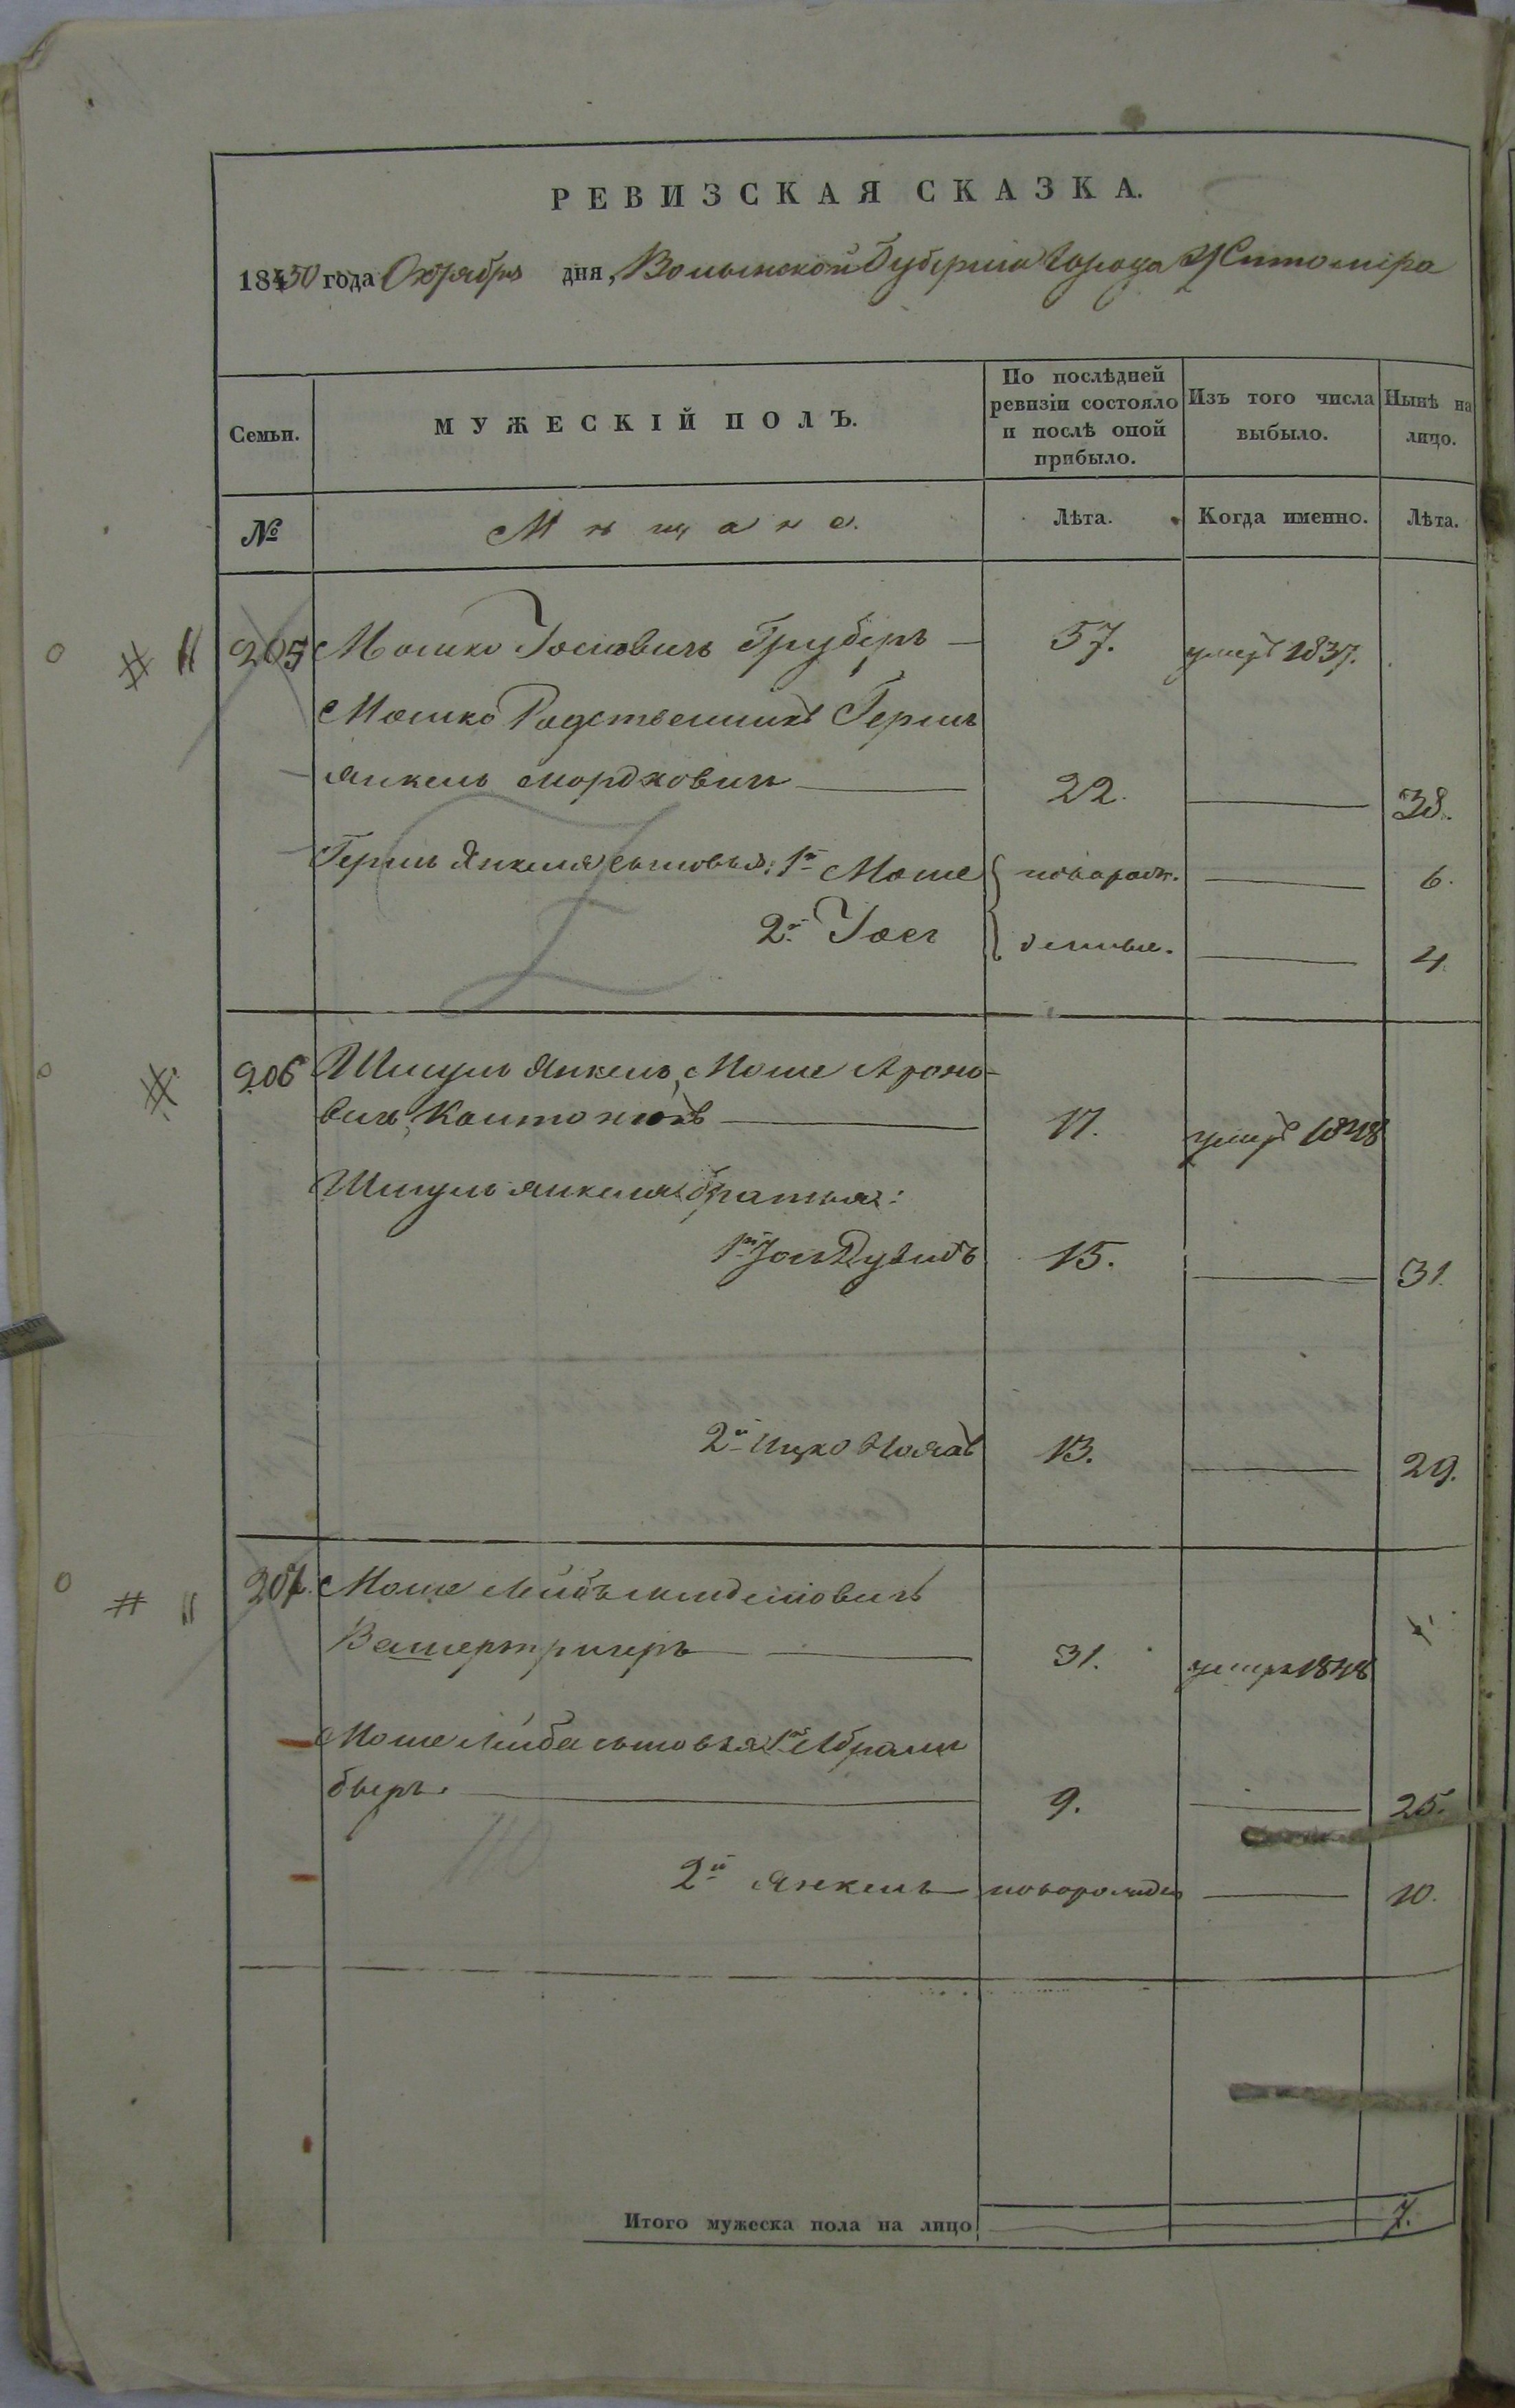 РЕВИЗСКАЯ СКАЗКА.
1850 года Октября дня, Волынской Губернии Города Житомира
Семьи.
МУЖЕСКІЙ ПОЛЪ.
По послѣдней
ревизіи состояло
и послѣ оной
прибыло.
Изъ того числа
выбыло.
Нынѣ на
лицо.
№
Мѣщане.
Лѣта.
Когда именно.
Лѣта.
205 Мошко Іосіовичъ Груберъ — 57. умеръ 1837.
Мошко Родственникъ Гершъ
Янкель Мордковичъ — 22. — 38.
Гершъ Янкеля сыновья: 1й Моше новорож. — 6.
2й Іосъ денные. — 4.
206 Шмуль Янкель, Моше Ароно-
вичъ, Коитонюкъ — 17. умеръ 1848
Шмуль Янкеля братья:
1й Іось Дувидъ 15. — 31.
2й Ицко 13. — 29.
207. Моше Лейбъ
Вашертригеръ — 31. умеръ 1848
Моше Лейба сыновья 1й Абрамъ
беръ. — 9. — 25.
2й Янкель — — 10.
Итого мужеска пола на лицо 7.